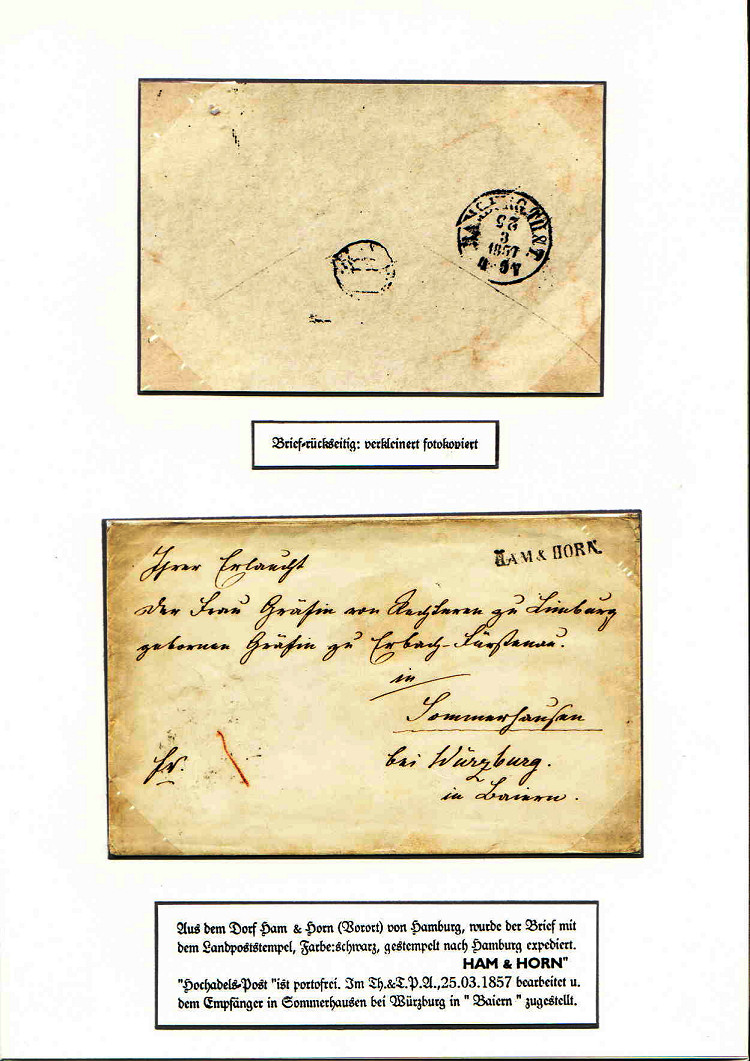 HAMBURG TH&T.
25
3
1857
Brief-rückseitig: verkleinert fotokopiert
HAM & HORN.
Ihrer Erlaucht
der Frau Gräfin von Rechteren zu Limburg
gebornen Gräfin zu Erbach-Fürstenau.
in
Sommerhausen
bei Würzburg.
fr.
in Baiern.
Aus dem Dorf Ham & Horn (Vorort) von Hamburg, wurde der Brief mit
dem Landpoststempel, Farbe:schwarz, gestempelt nach Hamburg expediert.
HAM & HORN"
"Hochadels-Post "ist portofrei. Im Th.&T.P.A.,25.03.1857 bearbeitet u.
dem Empfänger in Sommerhausen bei Würzburg in " Baiern " zugestellt.